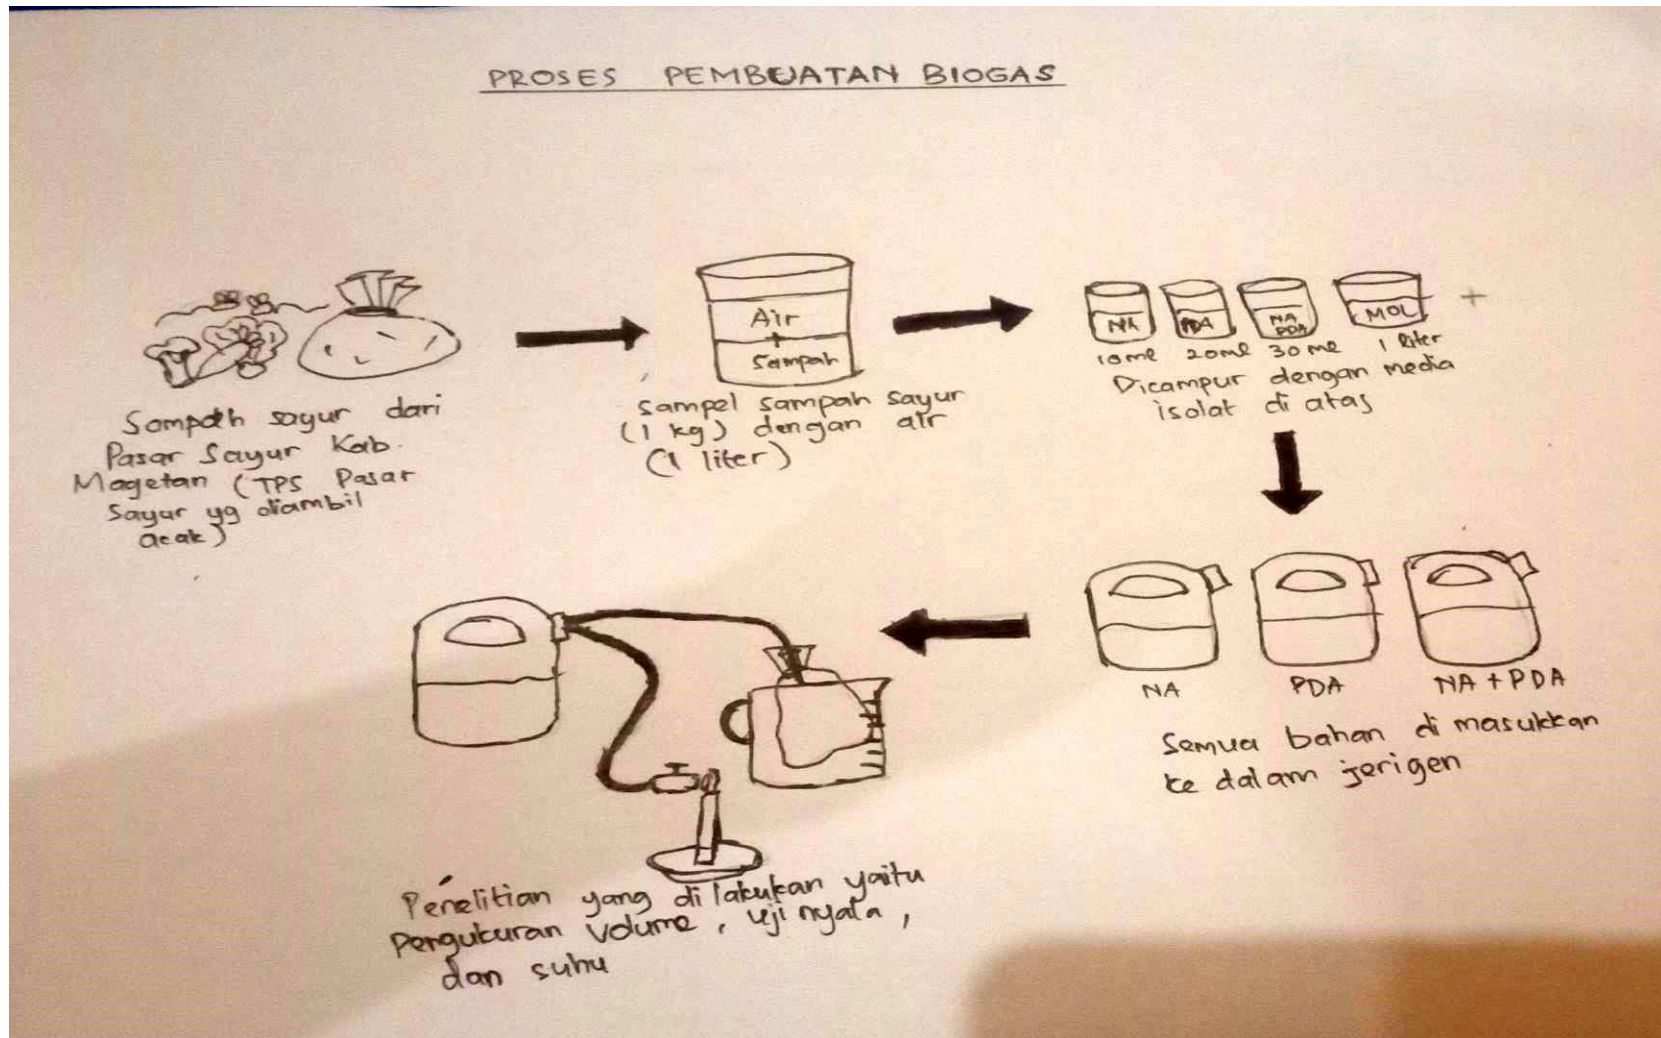 PROSES PEMBUATAN BIOGAS
Sampah sayur dari
Pasar Sayur Kab.
Magetan (TPS Pasar
Sayur yg diambil
acak)
Air
+
Sampah
sampel sampah sayur
(1 kg) dengan air
(1 liter)
NA
PDA
NA
PDA
MOL
+
10 ml 20 ml 30 ml 1 liter
Dicampur dengan media
isolat di atas
NA
PDA
NA + PDA
Semua bahan di masukkan
ke dalam jerigen
Penelitian yang di lakukan yaitu
Pengukuran volume, uji nyala,
dan suhu